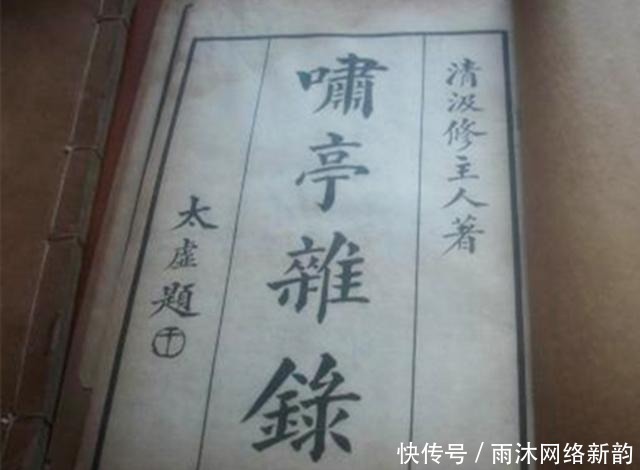 清汲修主人著
嘯亭雜錄
太虛題
快传号／雨沐网络新韵